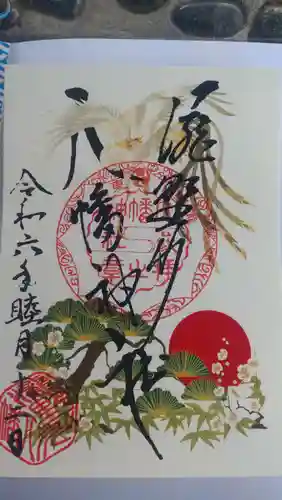 瀧野川
八幡神社
令和六年睦月十二日